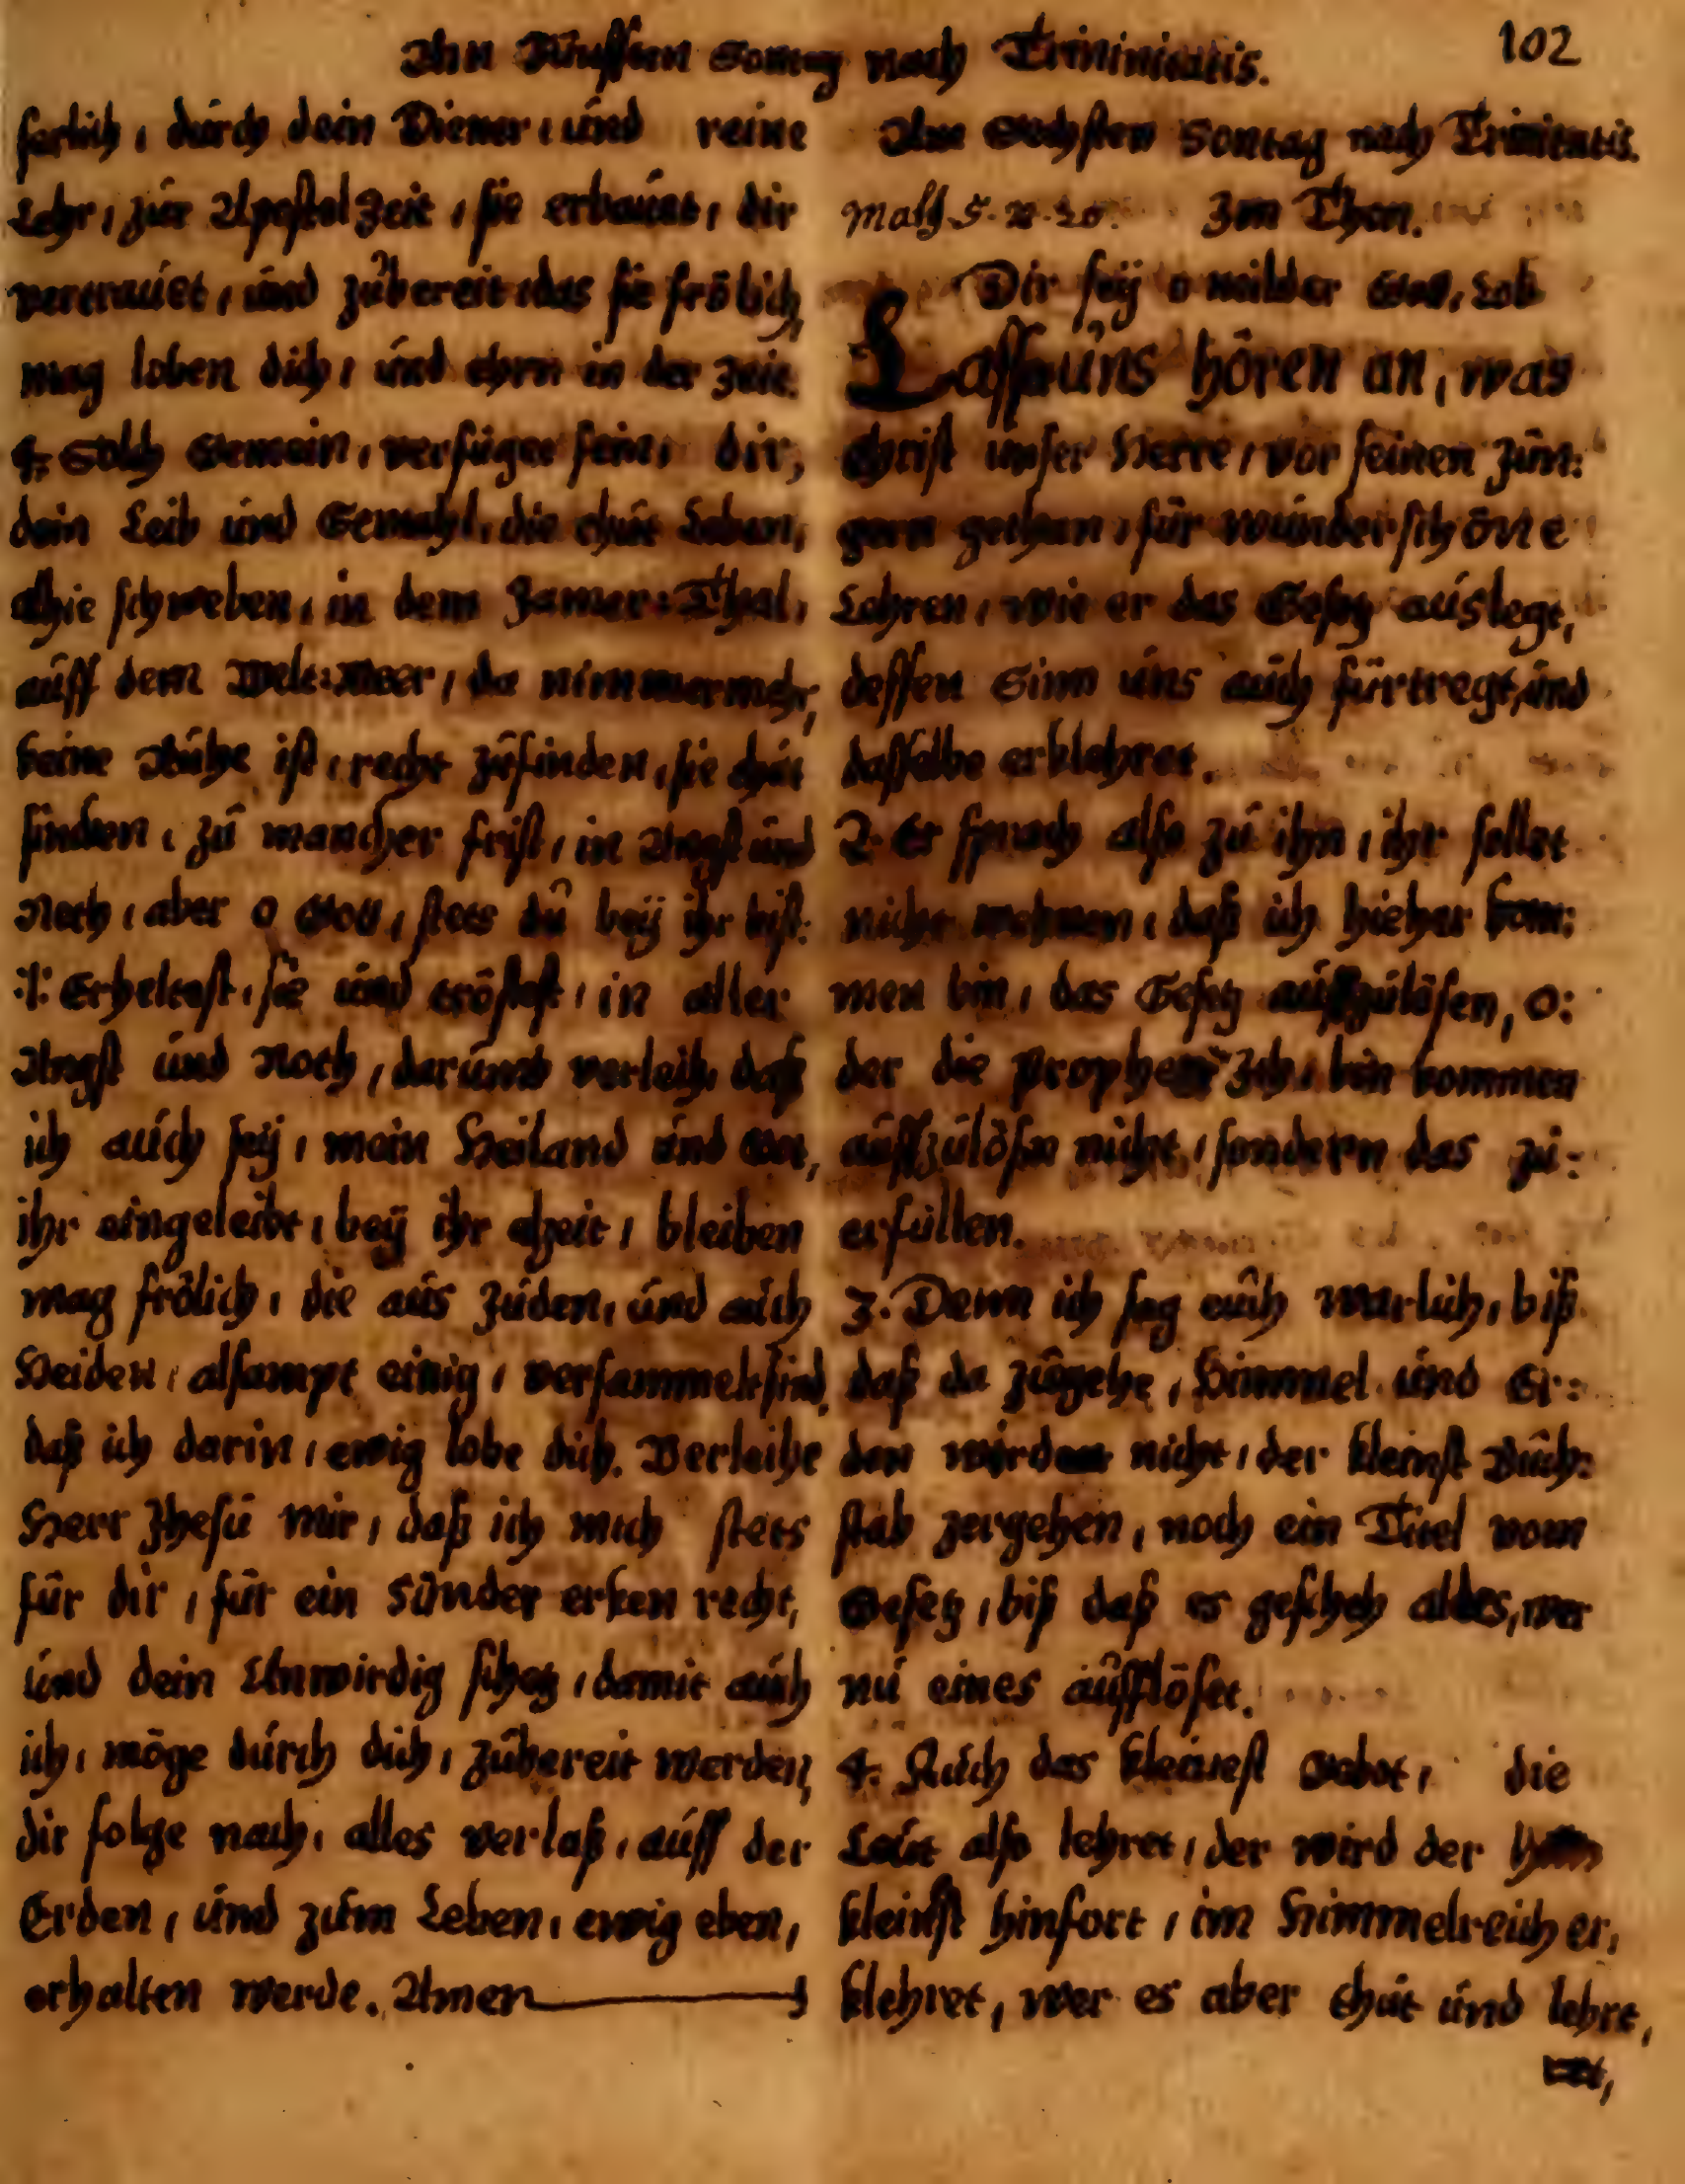 Am Fünfften Sontag nach Trininitatis.
102
ferlich, durch dein Diener, und reine
Lehr, zur Apostel Zeit, sie erbauet, dir
vertrauet, und zubereit, das sie frölich,
mag loben dich, und ehrn in der Zeit.
4. Solch Gemein, verfüget fein, dir,
dein Leib und Gemahl, die thut Leben,
alhie schweben, in dem Jamer=Thal,
auff dem Welt=Meer, da nimmermehr,
keine Ruhe ist, recht zufinden, sie thut
finden, zu mancher frist, in Angst und
Noth, aber o Gott, stets du beÿ ihr bist:
:/: Erheltest, sie und tröstest, in aller
Angst und Noth, darumb verleih, daß
ich auch seÿ, mein Heiland und Gott,
ihr eingeleibt, beÿ ihr alzeit, bleiben
mag frölich, die aus Juden, und auch
Heiden, alsampt einig, versammelt sind,
daß ich darin, ewig lobe dich. Verleihe
Herr Jhesu mir, daß ich mich stets
für dir, für ein Sünder erken recht,
und dein Unwirdig schetz, damit auch
ich, möge durch dich, zubereit werden,
dir folge nach, alles verlaß, auff der
Erden, und zum Leben, ewig eben,
erhalten werde. Amen
Am Sechsten Sontag nach Trinitatis.
Math 5. v. 20. Im Thon.
Dir seÿ o milder Gott, Lob
Lasst uns hören an, was
Christ unser Herre, vor seinen Jün:
gern gethan, für wunderschöne
Lehren, wie er das Gesetz auslegt,
dessen Sinn uns auch fürtregt, und
dasselbe erklehret.
2. Er sprach also zu ihn, ihr sollet
nicht wehnen, daß ich hieher kom:
men bin, das Gesetz auffzulösen, o:
der die Prophetn Ich, bin kommen
auffzulösen nicht, sondern das zu:
erfüllen.
3. Denn ich sag euch warlich, biß
daß da zugehe, Himmel und Er:
den würden nicht, der kleinst Buch:
stab zergehen, noch ein Titel vom
Gesetz, biß daß es gescheh alles, wer
nu eines aufflöset.
4. Auch das kleinest Gebot, die
Leut also lehret, der wird der
kleinst hinfort, im Himmelreich er,
klehret, wer es aber thut und lehrt,